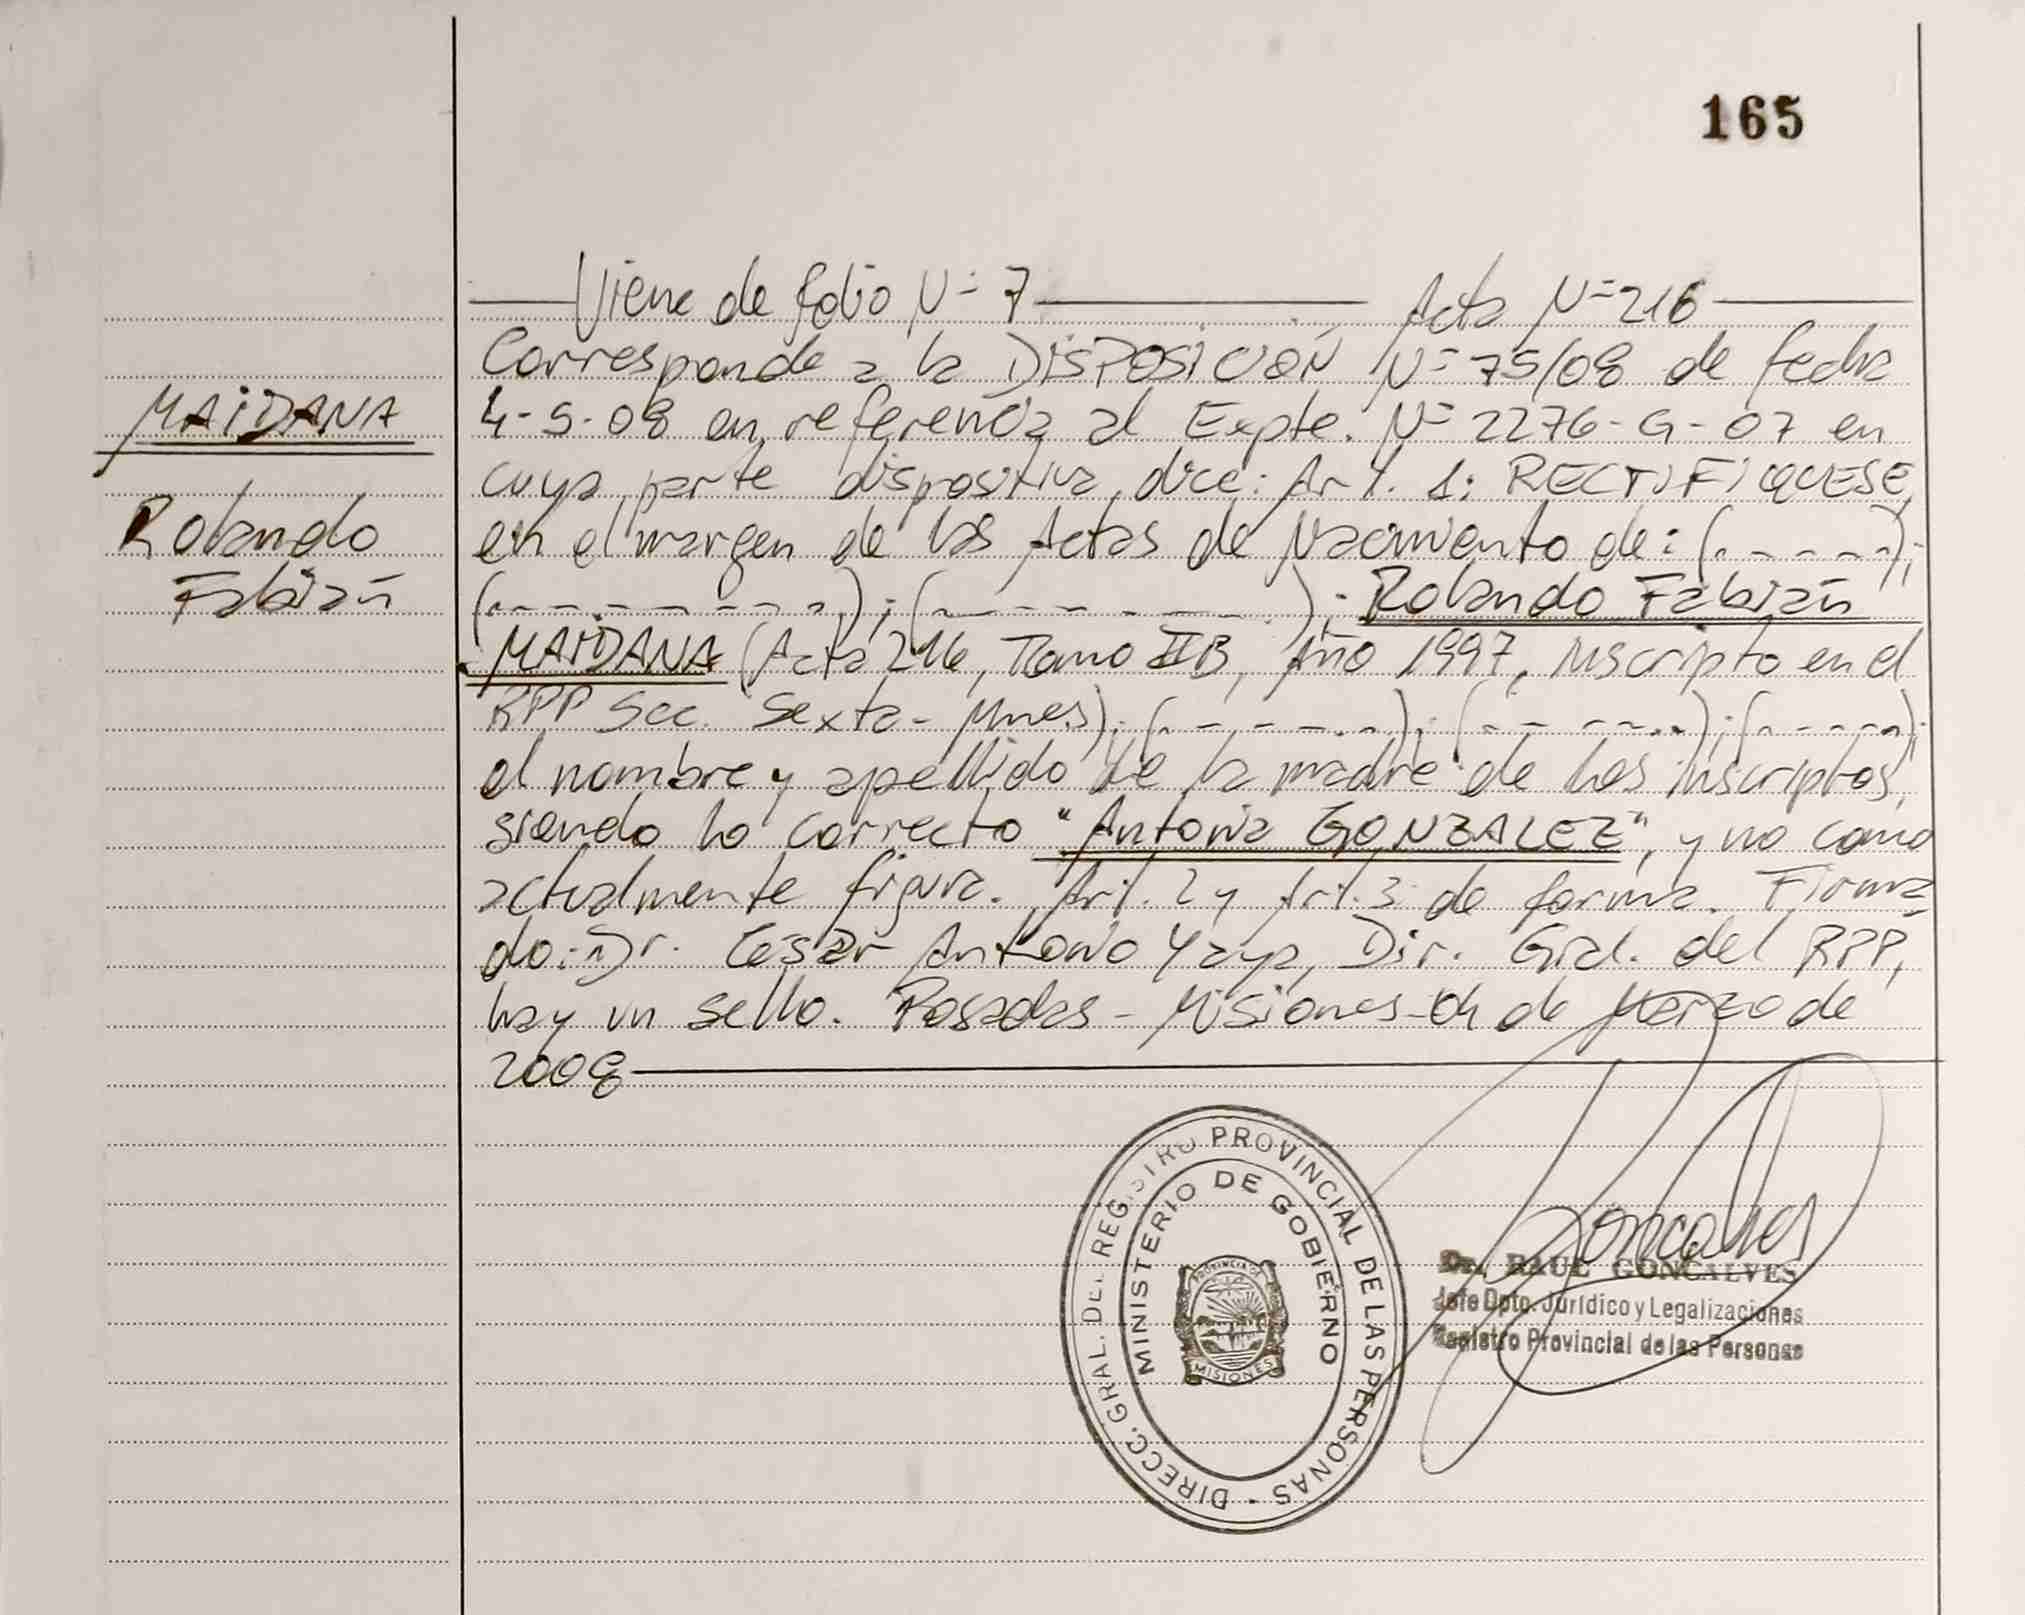 165
Viene de folio N= 7 Acta N= 216
Corresponde a la DISPOSICIÓN N= 75/08 de fecha
MAIDANA
4-5-08 en referencia al Expte. N= 2276-G-07 en
cuya parte dispositiva, dice: Art. 1: RECTIFIQUESE,
Rolando
en el margen de las Actas de Nacimiento de: (- - - - -);
Fabián
(- - - - - - - -); (- - - - - - -); Rolando Fabián
MAIDANA (Acta 216, Tomo IIB, Año 1997, inscripto en el
RPP Sec. Sexta - Mnes); (- - - - - -); (- - - - - -); (- - - - -);
el nombre y apellido de la madre de los inscriptos,
siendo lo correcto "Antonia GONZALEZ", y no como
actualmente figura. Art. 2 y Art. 3 de forma. Firma
do: Dr. César Antonio Yaya, Dir. Gral. del RPP,
hay un sello. Posadas - Misiones - 04 de Marzo de
2008
DIRECC. GRAL. DEL REGISTRO PROVINCIAL DE LAS PERSONAS -
MINISTERIO DE GOBIERNO
PROVINCIA DE
MISIONES
Goncalves
Dr. RAUL GONCALVES
Jefe Dpto. Jurídico y Legalizaciones
Registro Provincial de las Personas